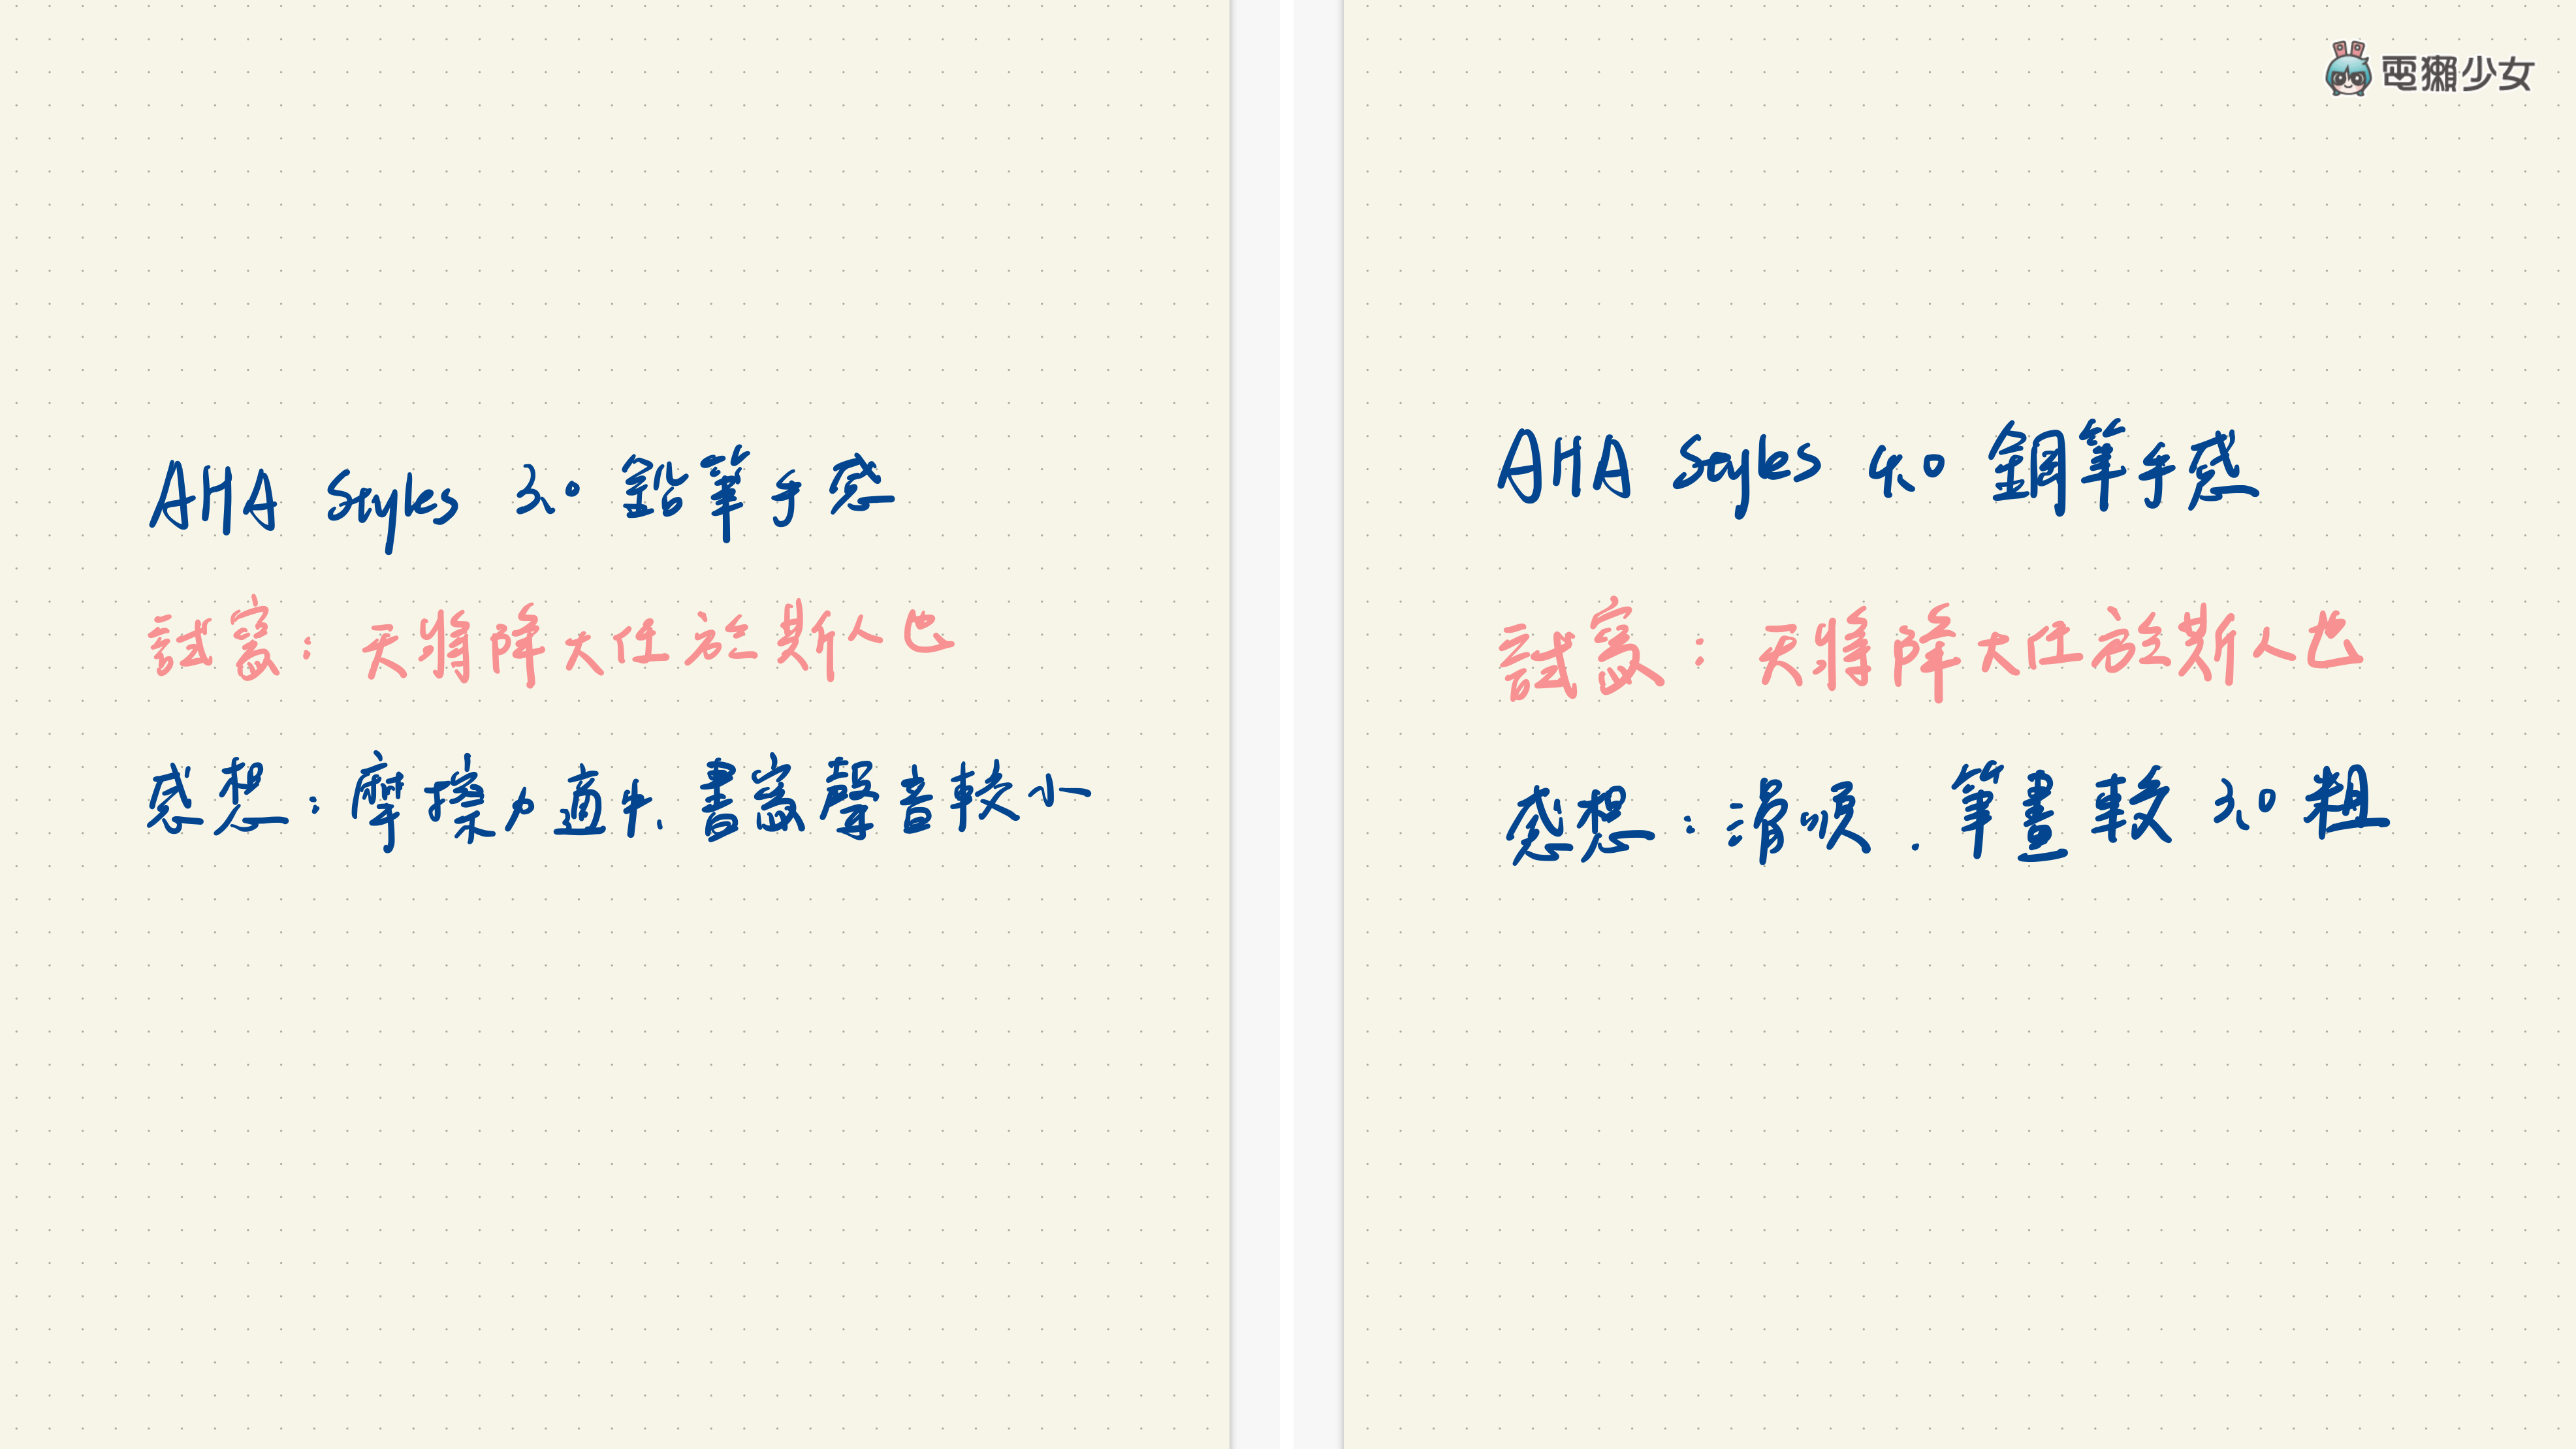 電獺少女
AHA Styles 3.0 鉛筆手感
試寫：天將降大任於斯人也
感想：摩擦力適中、書寫聲音較小
AHA Styles 4.0 鋼筆手感
試寫：天將降大任於斯人也
感想：滑順．筆畫較3.0粗